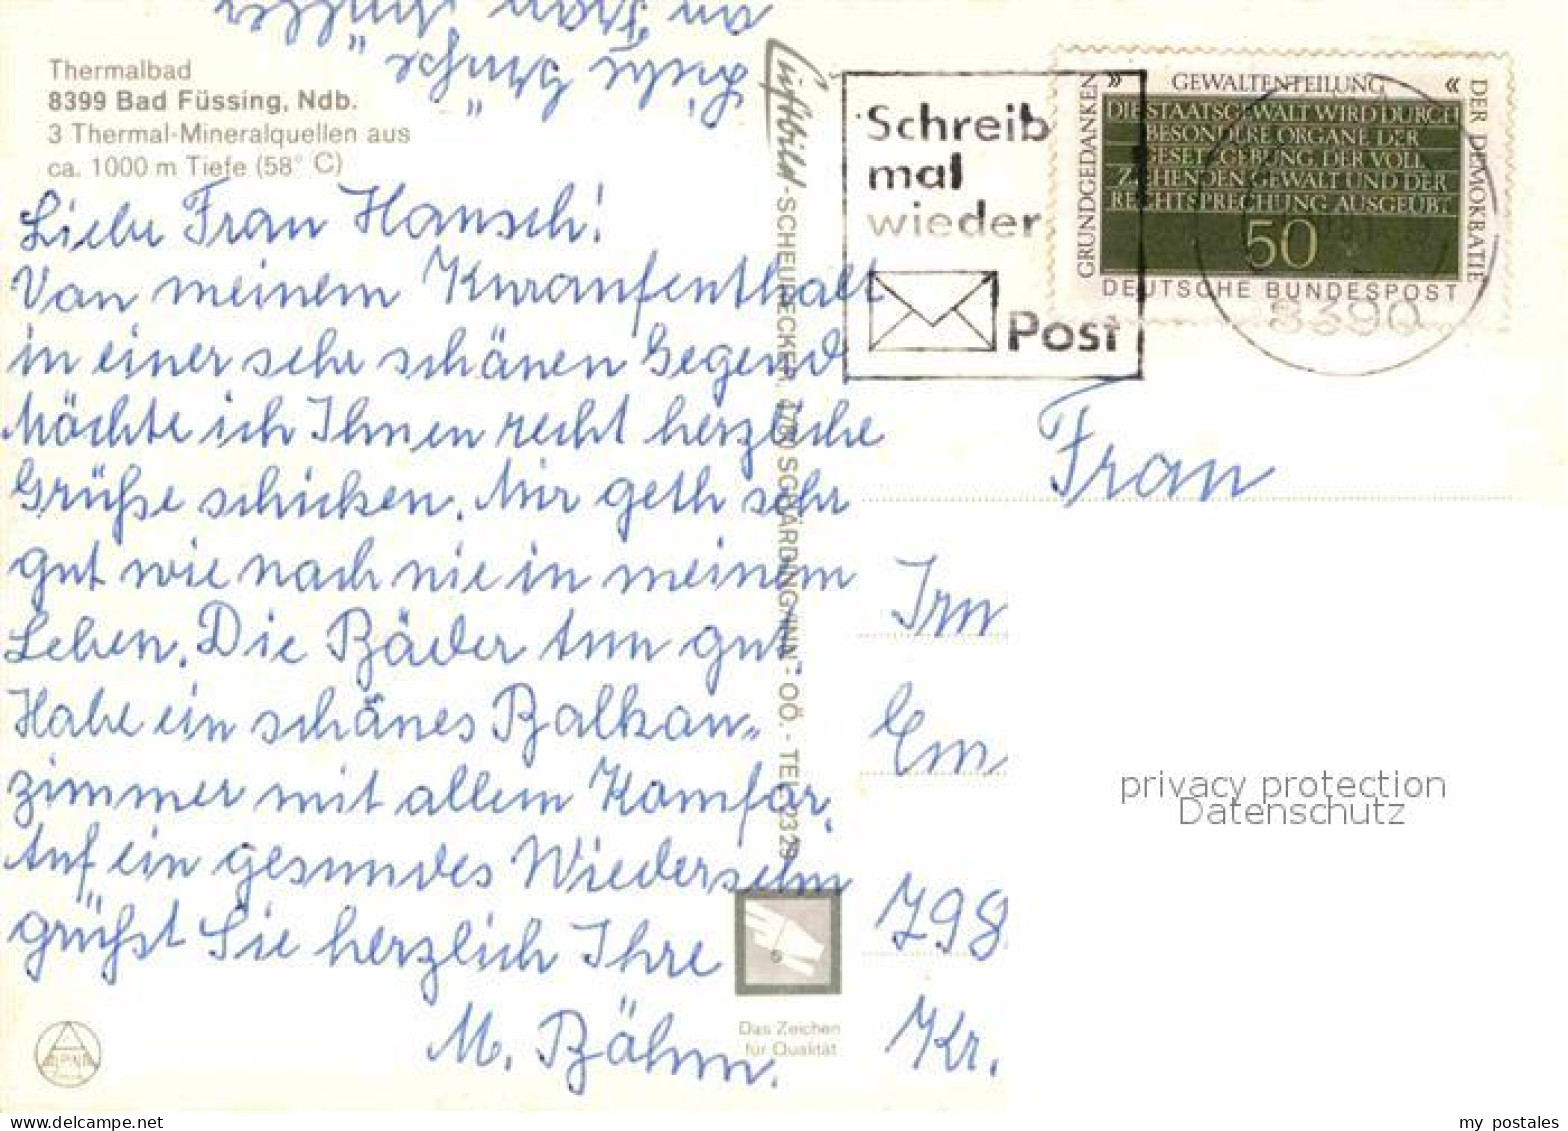 Thermalbad
8399 Bad Füssing, Ndb.
3 Thermal-Mineralquellen aus
ca. 1000 m Tiefe (58° C)
Liebe Frau Hansch!
Von meinem Kuraufenthalt
in einer sehr schönen Gegend
Möchte ich Ihnen recht herzliche
Grüße schicken. Mir geth sehr
gut wie noch nie in meinem
Leben. Die Bäder tun gut.
Habe ein schönes Balkon-
zimmer mit allem Komfor.
Auf ein gesundes Wiedersehn
grüßt Sie herzlich Ihre
M. Böhm.
Liebe Grüße
an Frau Müller
Luftbild-SCHEURECKER, 4780 SCHÄRDING/INN - OÖ. - TEL. 2329
Das Zeichen
für Qualität
ALPINA
Schreib
mal
wieder
Post
GRUNDGEDANKEN
» GEWALTENTEILUNG «
DER DEMOKRATIE
DIE STAATSGEWALT WIRD DURCH
BESONDERE ORGANE DER
GESETZGEBUNG, DER VOLL
ZIEHENDEN GEWALT UND DER
RECHTSPRECHUNG AUSGEÜBT
50
DEUTSCHE BUNDESPOST
8390
Frau
Irm
Em
798
Kr.
privacy protection
Datenschutz
my postales